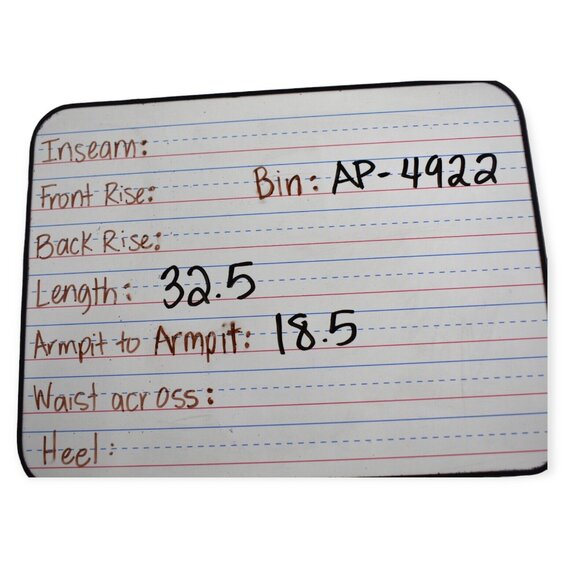 Inseam:
Front Rise: Bin: AP-4922
Back Rise:
Length: 32.5
Armpit to Armpit: 18.5
Waist across:
Heel: